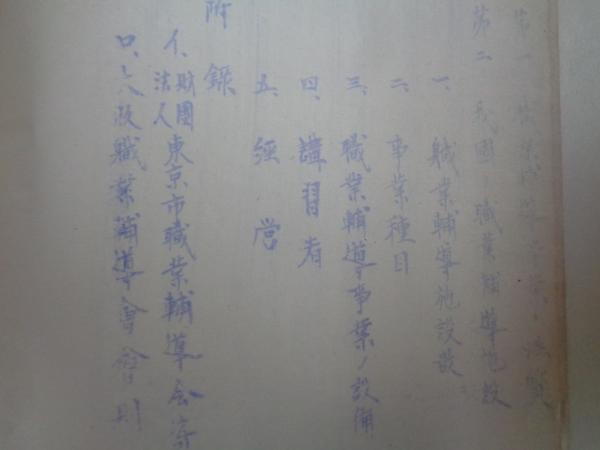 第一 職業輔導事業ノ法覧
第二 我國ノ職業輔導施設
一、職業輔導施設数
二、事業種目
三、職業輔導事業ノ設備
四、講習者
五、經営
附錄
イ、財團法人東京市職業輔導会寄
ロ、大阪職業輔導會會則